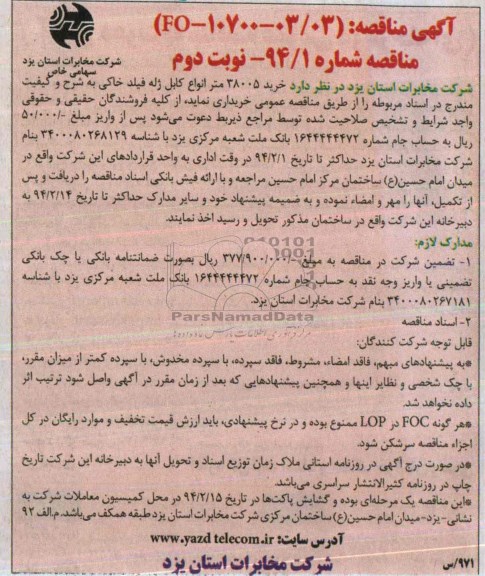 آگهی مناقصه: (FO-10700-03/03)
مناقصه شماره 94/1- نوبت دوم
شرکت مخابرات استان یزد
سهامی خاص
شرکت مخابرات استان یزد در نظر دارد خرید 38005 متر انواع کابل ژله فیلد خاکی به شرح و کیفیت
مندرج در اسناد مربوطه را از طریق مناقصه عمومی خریداری نماید، از کلیه فروشندگان حقیقی و حقوقی
واجد شرایط و تشخیص صلاحیت شده توسط مراجع ذیربط دعوت می‌شود پس از واریز مبلغ -/50/000
ریال به حساب جام شماره 1644444472 بانک ملت شعبه مرکزی یزد با شناسه 3400080268129 بنام
شرکت مخابرات استان یزد حداکثر تا تاریخ 94/2/1 در وقت اداری به واحد قراردادهای این شرکت واقع در
میدان امام حسین(ع) ساختمان مرکز امام حسین مراجعه و با ارائه فیش بانکی اسناد مناقصه را دریافت و پس
از تکمیل، آنها را مهر و امضاء نموده و به ضمیمه پیشنهاد خود و سایر مدارک حداکثر تا تاریخ 94/2/14 به
دبیرخانه این شرکت واقع در ساختمان مذکور تحویل و رسید اخذ نمایند.
مدارک لازم:
1- تضمین شرکت در مناقصه به مبلغ -/377/900/000 ریال بصورت ضمانتنامه بانکی یا چک بانکی
تضمینی یا واریز وجه نقد به حساب جام شماره 1644444472 بانک ملت شعبه مرکزی یزد با شناسه
3400080267181 بنام شرکت مخابرات استان یزد.
2- اسناد مناقصه
ParsNamadData
قابل توجه شرکت کنندگان:
*به پیشنهادهای مبهم، فاقد امضاء، مشروط، فاقد سپرده، با سپرده مخدوش، با سپرده کمتر از میزان مقرر،
با چک شخصی و نظایر اینها و همچنین پیشنهادهایی که بعد از زمان مقرر در آگهی واصل شود ترتیب اثر
داده نخواهد شد.
*هر گونه FOC در LOP ممنوع بوده و در نرخ پیشنهادی، باید ارزش قیمت تخفیف و موارد رایگان در کل
اجزاء مناقصه سرشکن شود.
*در صورت درج آگهی در روزنامه استانی ملاک زمان توزیع اسناد و تحویل آنها به دبیرخانه این شرکت تاریخ
چاپ در روزنامه کثیرالانتشار سراسری می‌باشد.
*این مناقصه یک مرحله‌ای بوده و گشایش پاکت‌ها در تاریخ 94/2/15 در محل کمیسیون معاملات شرکت به
نشانی- یزد- میدان امام حسین(ع) ساختمان مرکزی شرکت مخابرات استان یزد طبقه همکف می‌باشد. م.الف 92
آدرس سایت: www.yazd telecom.ir
شرکت مخابرات استان یزد
971/س